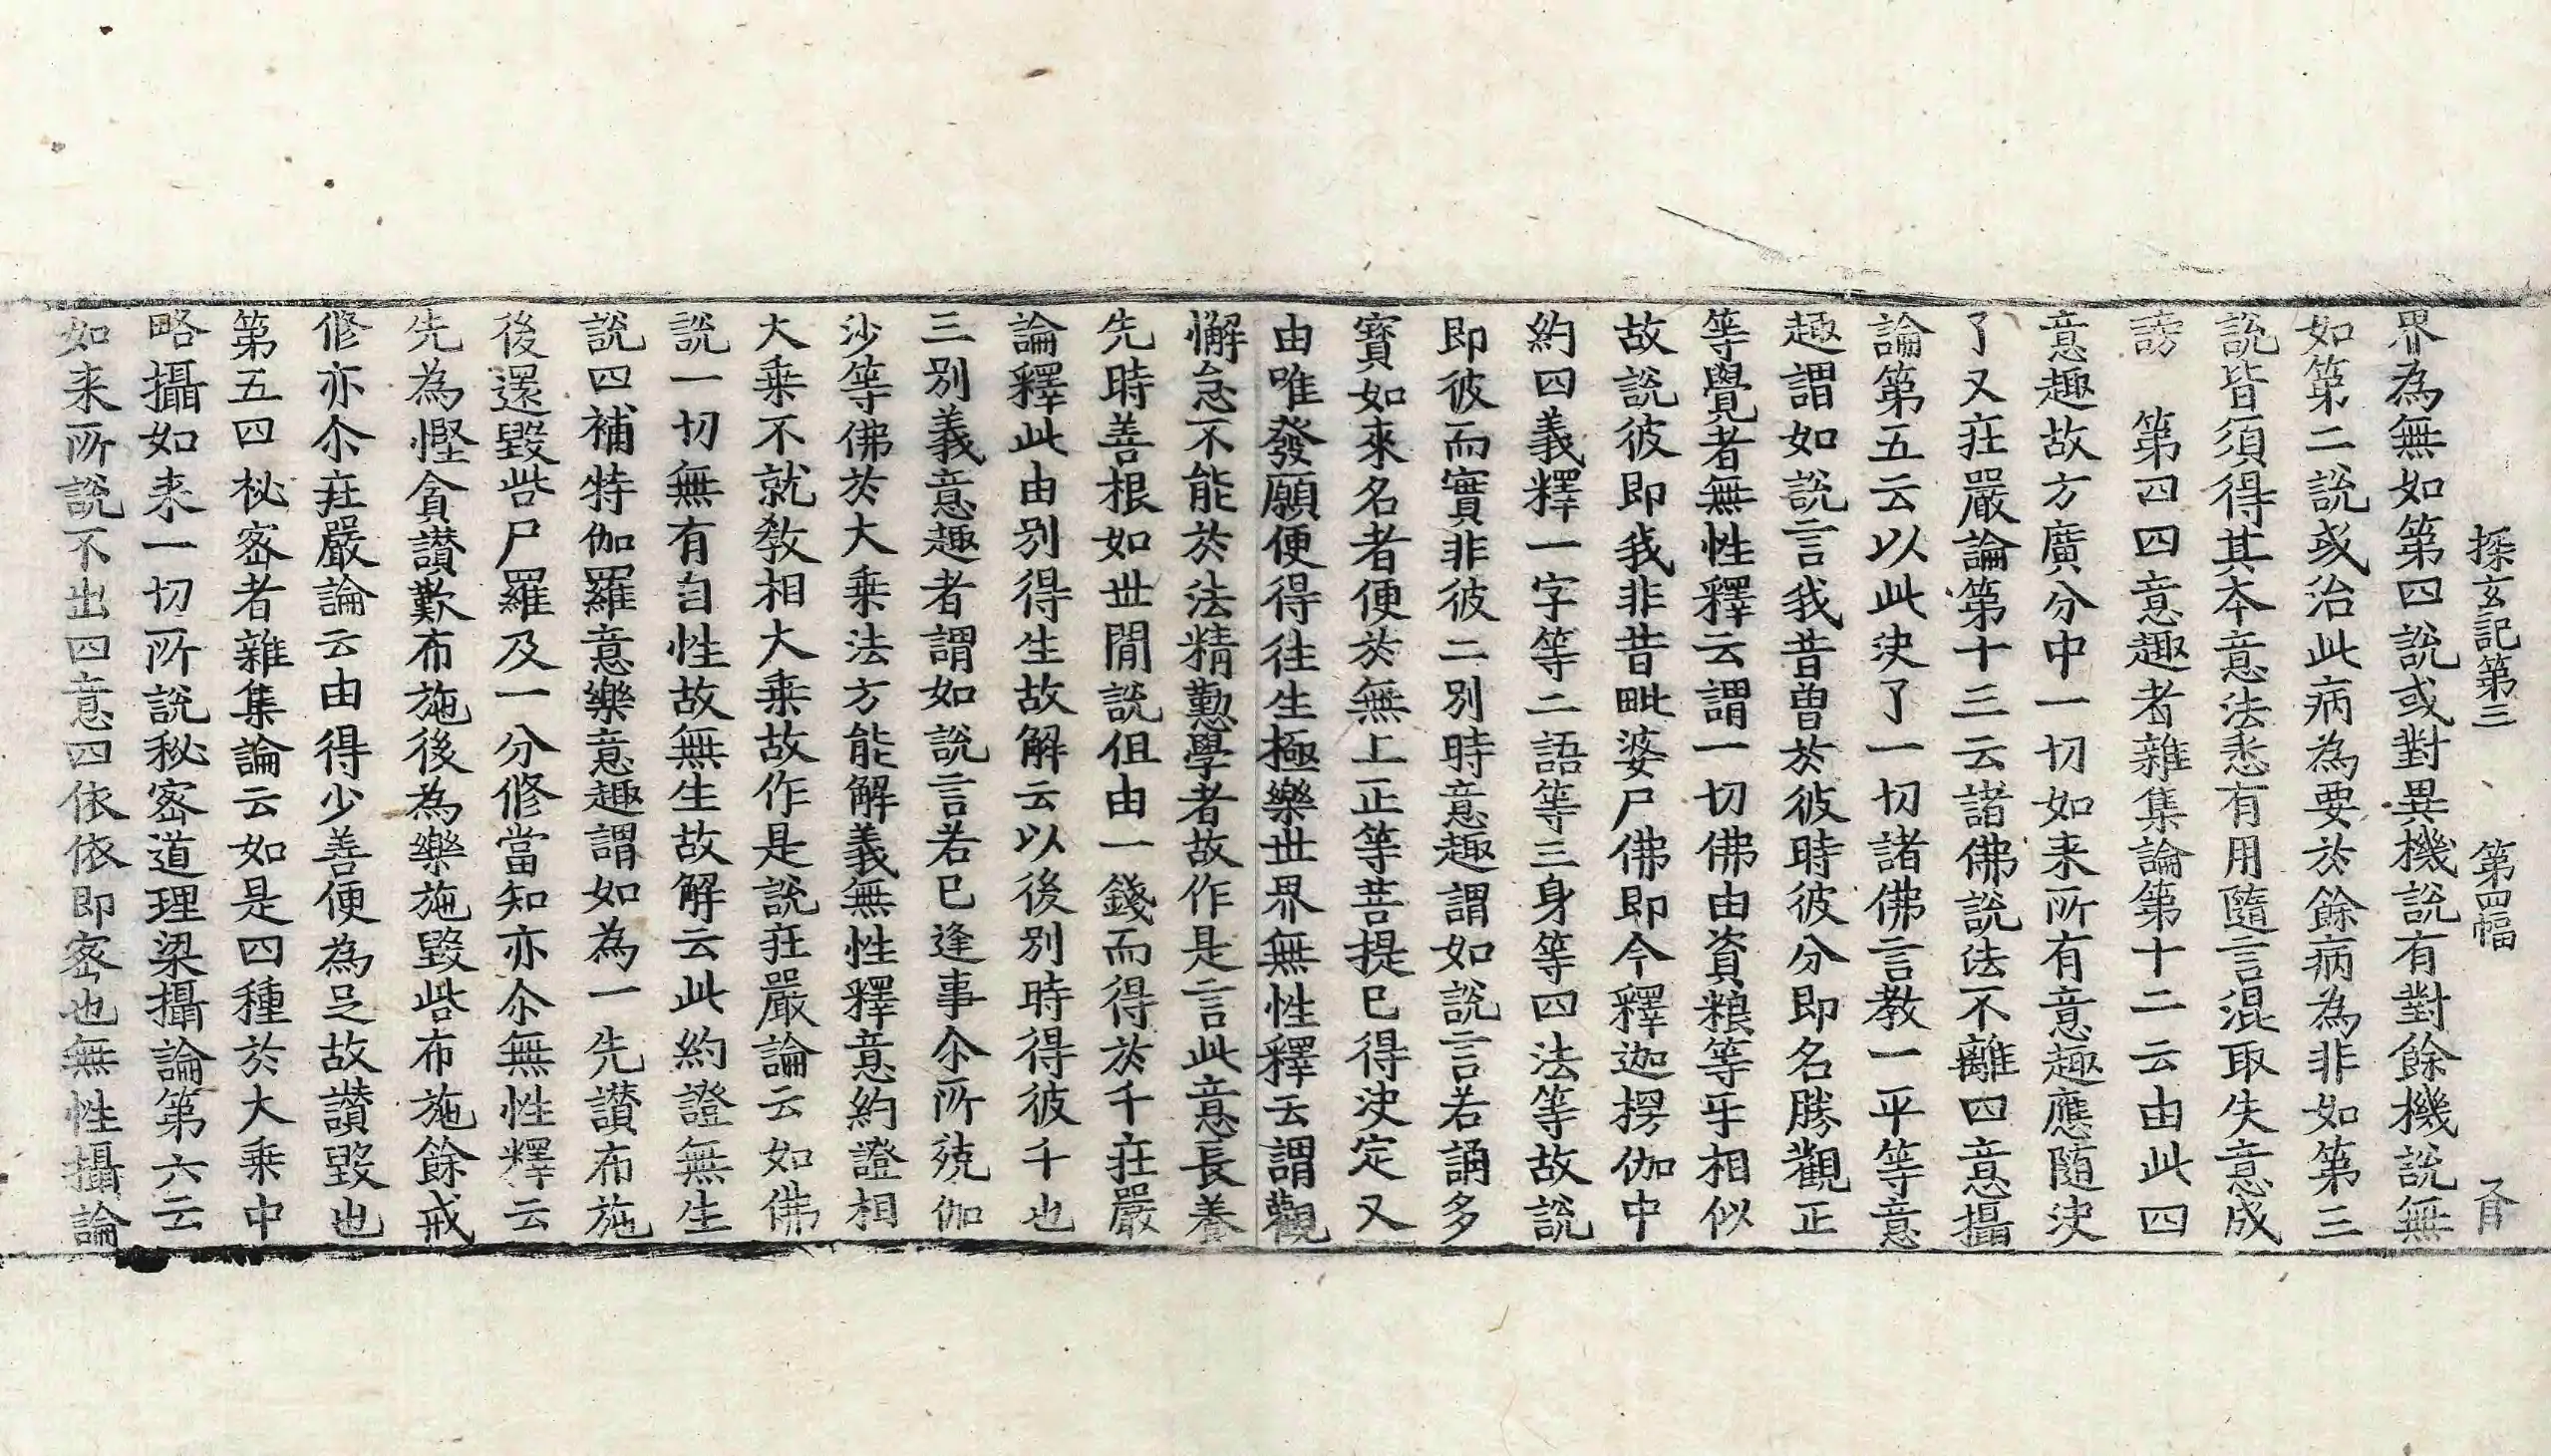 探玄記第三　第四幅
界為無如第四說或對異機說有對餘機說無
如第二說或治此病為要於餘病為非如第三
說皆須得其本意法悉有用隨言混取失意成
謗　第四四意趣者雜集論第十二云由此四
意趣故方廣分中一切如来所有意趣應隨決
了又莊嚴論第十三云諸佛說法不離四意攝
論第五云以此決了一切諸佛言教一平等意
趣謂如說言我昔曽於彼時彼分即名勝觀正
等覺者無性釋云謂一切佛由資粮等乎相似
故說彼即我非昔毗婆尸佛即今釋迦楞伽中
約四義釋一字等二語等三身等四法等故說
即彼而實非彼二別時意趣謂如說言若誦多
寳如來名者便於無上正等菩提已得決定又
由唯發願便得往生極樂世界無性釋云謂觀
懈怠不能於法精懃學者故作是言此意長養
先時善根如世間說但由一錢而得於千莊嚴
論釋此由別得生故解云以後別時得彼千也
三別義意趣者謂如說言若已逢事尒所殑伽
沙等佛於大乗法方能解義無性釋意約證相
大乗不就教相大乗故作是說莊嚴論云如佛
說一切無有自性故無生故解云此約證無生
說四補特伽羅意樂意趣謂如為一先讃布施
後還毀呰尸羅及一分修當知亦尒無性釋云
先為慳貪讃歎布施後為樂施毀呰布施餘戒
修亦尒莊嚴論云由得少善便為足故讃毀也
第五四秘密者雜集論云如是四種於大乗中
略攝如来一切所說秘密道理梁攝論第六云
如来所說不出四意四依依即密也無性攝論